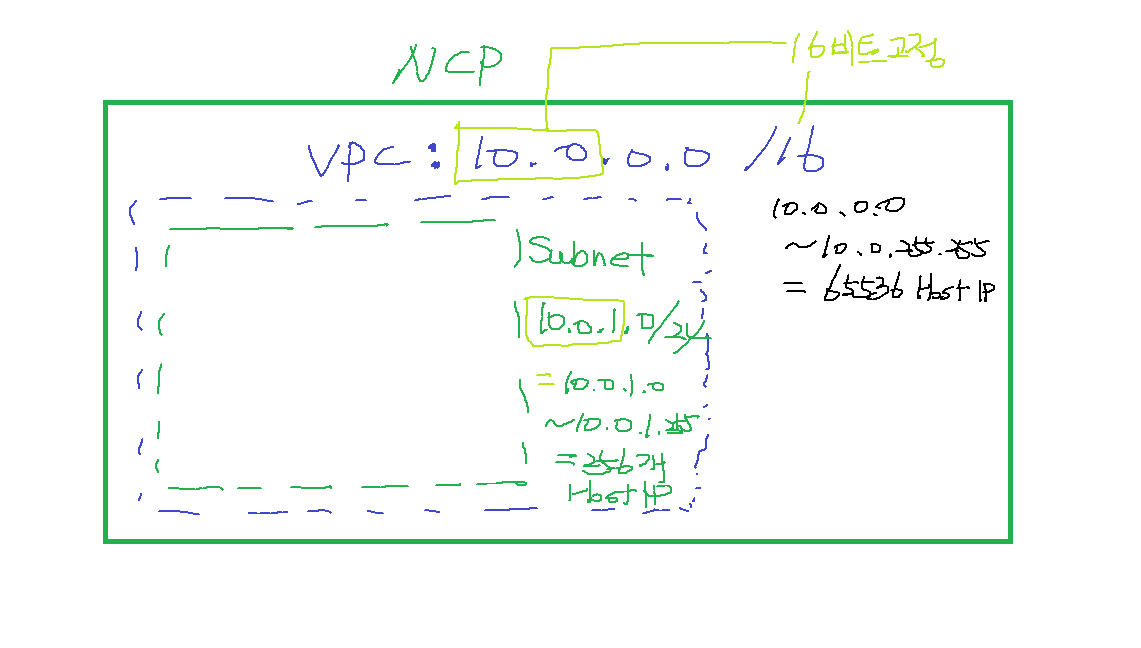 NCP
16비트고정
VPC: 10.0.0.0 /16
10.0.0.0
~10.0.255.255
= 65536 Host IP
Subnet
10.0.1.0/24
=10.0.1.0
~10.0.1.255
=256개
Host IP